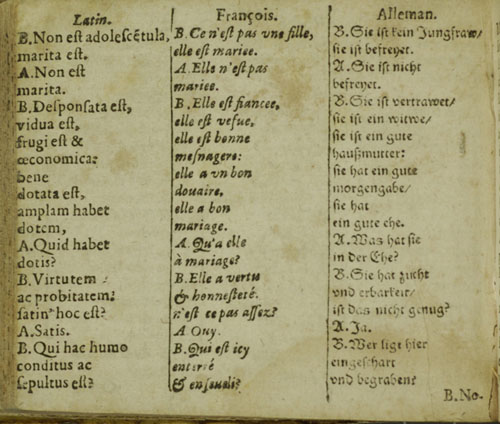 Latin.
B.Non est adolescẽtula,
marita est.
A.Non est
marita.
B.Desponsata est,
vidua est,
frugi est &
œconomica:
bene
dotata est,
amplam habet
dotem,
A.Quid habet
dotis?
B.Virtutem
ac probitatem:
satin' hoc est?
A.Satis.
B.Qui hac humo
conditus ac
sepultus est?
François.
B.Ce n'est pas vne fille,
elle est mariee.
A.Elle n'est pas
mariee.
B.Elle est fiancee,
elle est vefue,
elle est bonne
mesnagere:
elle a vn bon
douaire,
elle a bon
mariage.
A.Qu'a elle
à mariage?
B.Elle a vertu
& honnesteté.
n'est ce pas assez?
A Ouy.
B.Qui est icy
enterré
& enseueli?
Alleman.
B.Sie ist kein Jungfraw/
sie ist befreyet.
A.Sie ist nicht
befreyet.
B.Sie ist vertrawet/
sie ist ein witwe/
sie ist ein gute
haußmutter:
sie hat ein gute
morgengabe/
sie hat
ein gute ehe.
A.Was hat sie
in der Ehe?
B.Sie hat zucht
vnd erbarkeit/
ist das nicht genug?
A.Ja.
B.Wer ligt hier
eingeschart
vnd begraben?
B.No.